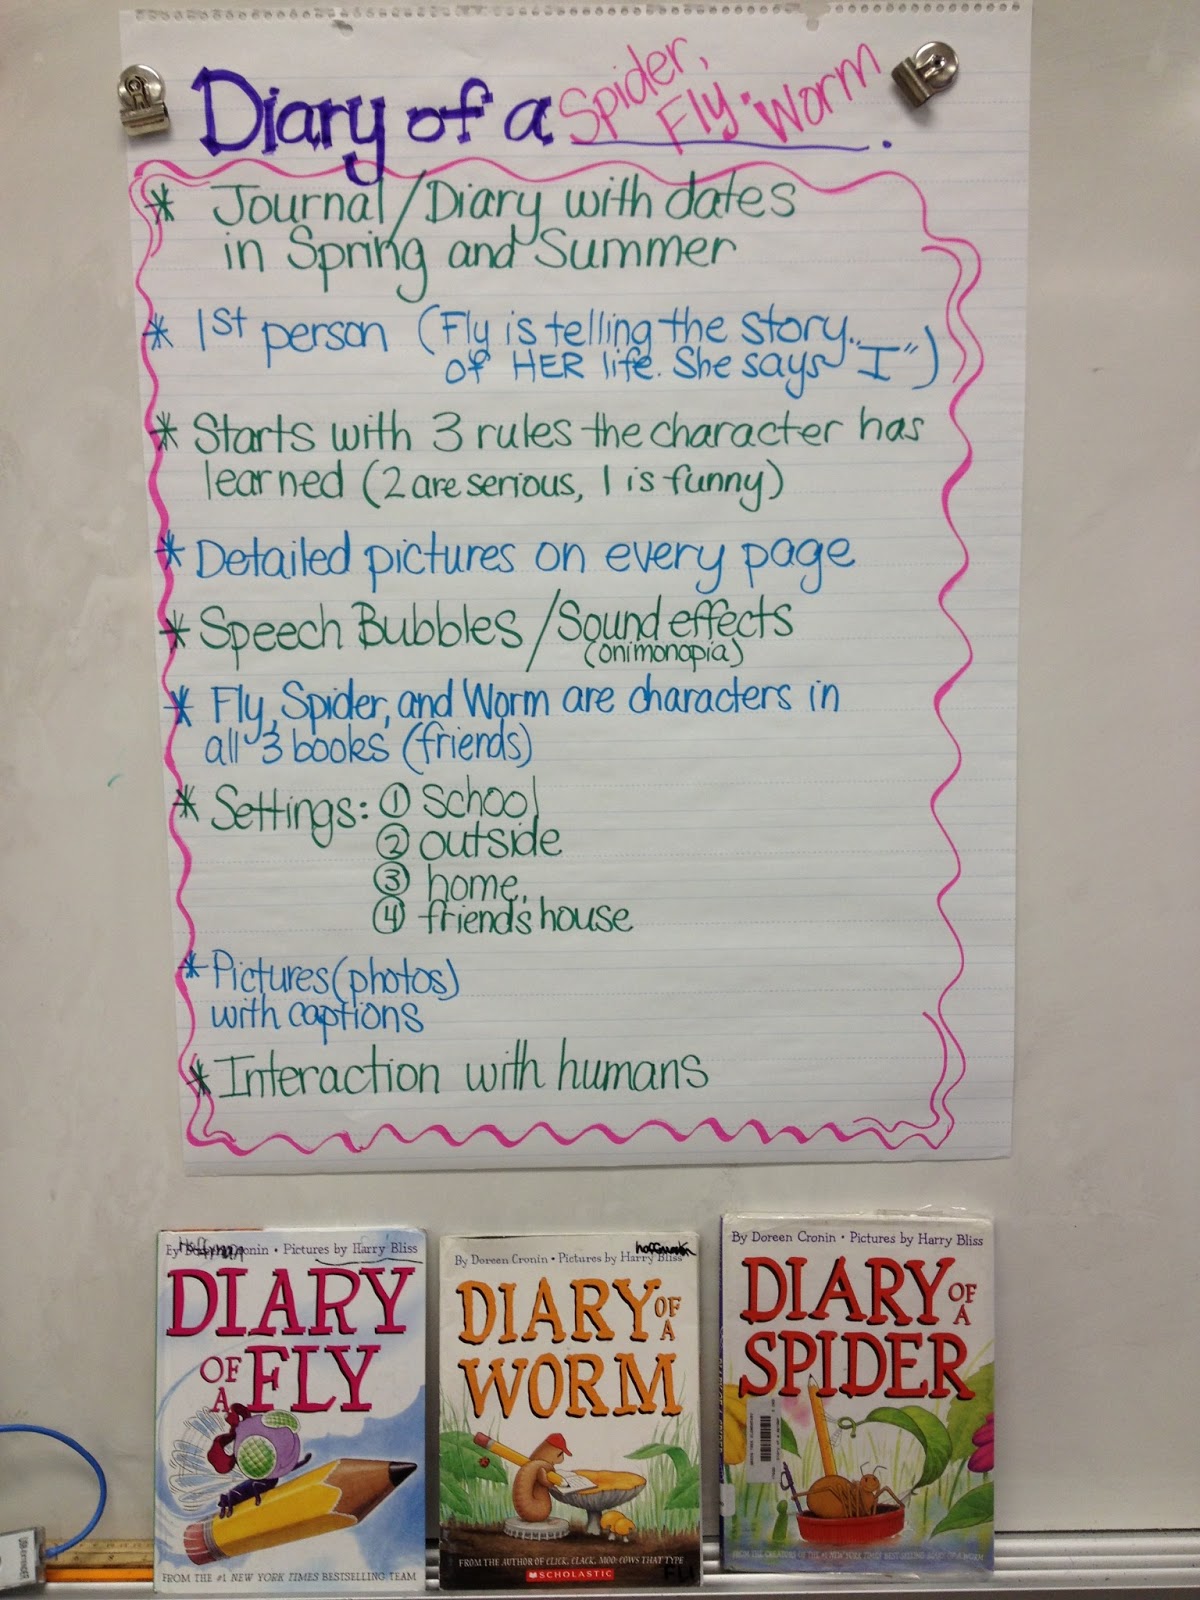 Diary of a Spider, Fly, Worm.
* Journal/Diary with dates
in Spring and Summer
* 1st person (Fly is telling the story
of HER life. She says "I")
* Starts with 3 rules the character has
learned (2 are serious, 1 is funny)
* Detailed pictures on every page
* Speech Bubbles/Sound effects
(onimonopia)
* Fly, Spider, and Worm are characters in
all 3 books (friends)
* Settings: ① school
② outside
③ home,
④ friends house
* Pictures (photos)
with captions
* Interaction with humans
Hoffman
By Doreen Cronin • Pictures by Harry Bliss
DIARY
OF
A FLY
FROM THE #1 NEW YORK TIMES BESTSELLING TEAM
hoffman
By Doreen Cronin • Pictures by Harry Bliss
DIARY OF
A
WORM
FROM THE AUTHOR OF CLICK, CLACK, MOO: COWS THAT TYPE
SCHOLASTIC
By Doreen Cronin • Pictures by Harry Bliss
DIARY OF
A
SPIDER